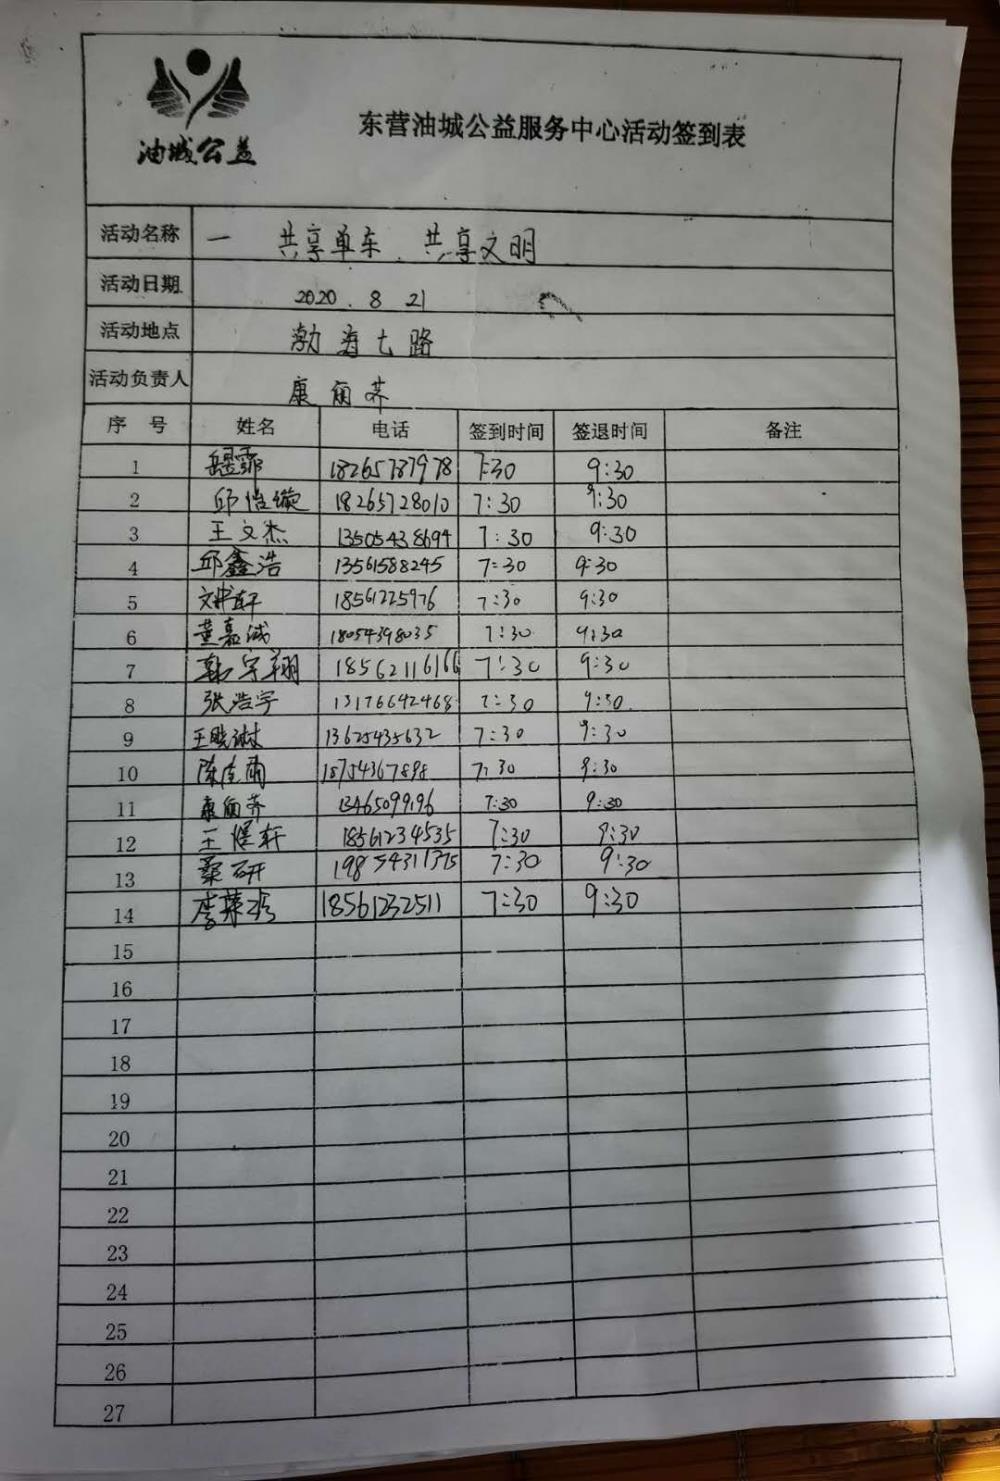 油城公益
东营油城公益服务中心活动签到表
活动名称 一 共享单车、共享文明
活动日期 2020.8 21
活动地点 渤海七路
活动负责人 康
序 号 姓名 电话 签到时间 签退时间 备注
1 18265787978 7:30 9:30
2 邱怡璇 18265728010 7:30 9:30
3 王文杰 13505438694 7:30 9:30
4 邱鑫浩 13561588245 7:30 9:30
5 18561225976 7:30 9:30
6 董嘉诚 18054398035 7:30 9:30
7 韩宇翔 18562116166 7:30 9:30
8 张浩宇 13176642468 7:30 9:30
9 王晓琳 13625435632 7:30 9:30
10 陈佳雨 18754367898 7:30 9:30
11 康 7:30 9:30
12 王煜轩 18561234535 7:30 9:30
13 桑研 19854311375 7:30 9:30
14 18561232511 7:30 9:30
15
16
17
18
19
20
21
22
23
24
25
26
27